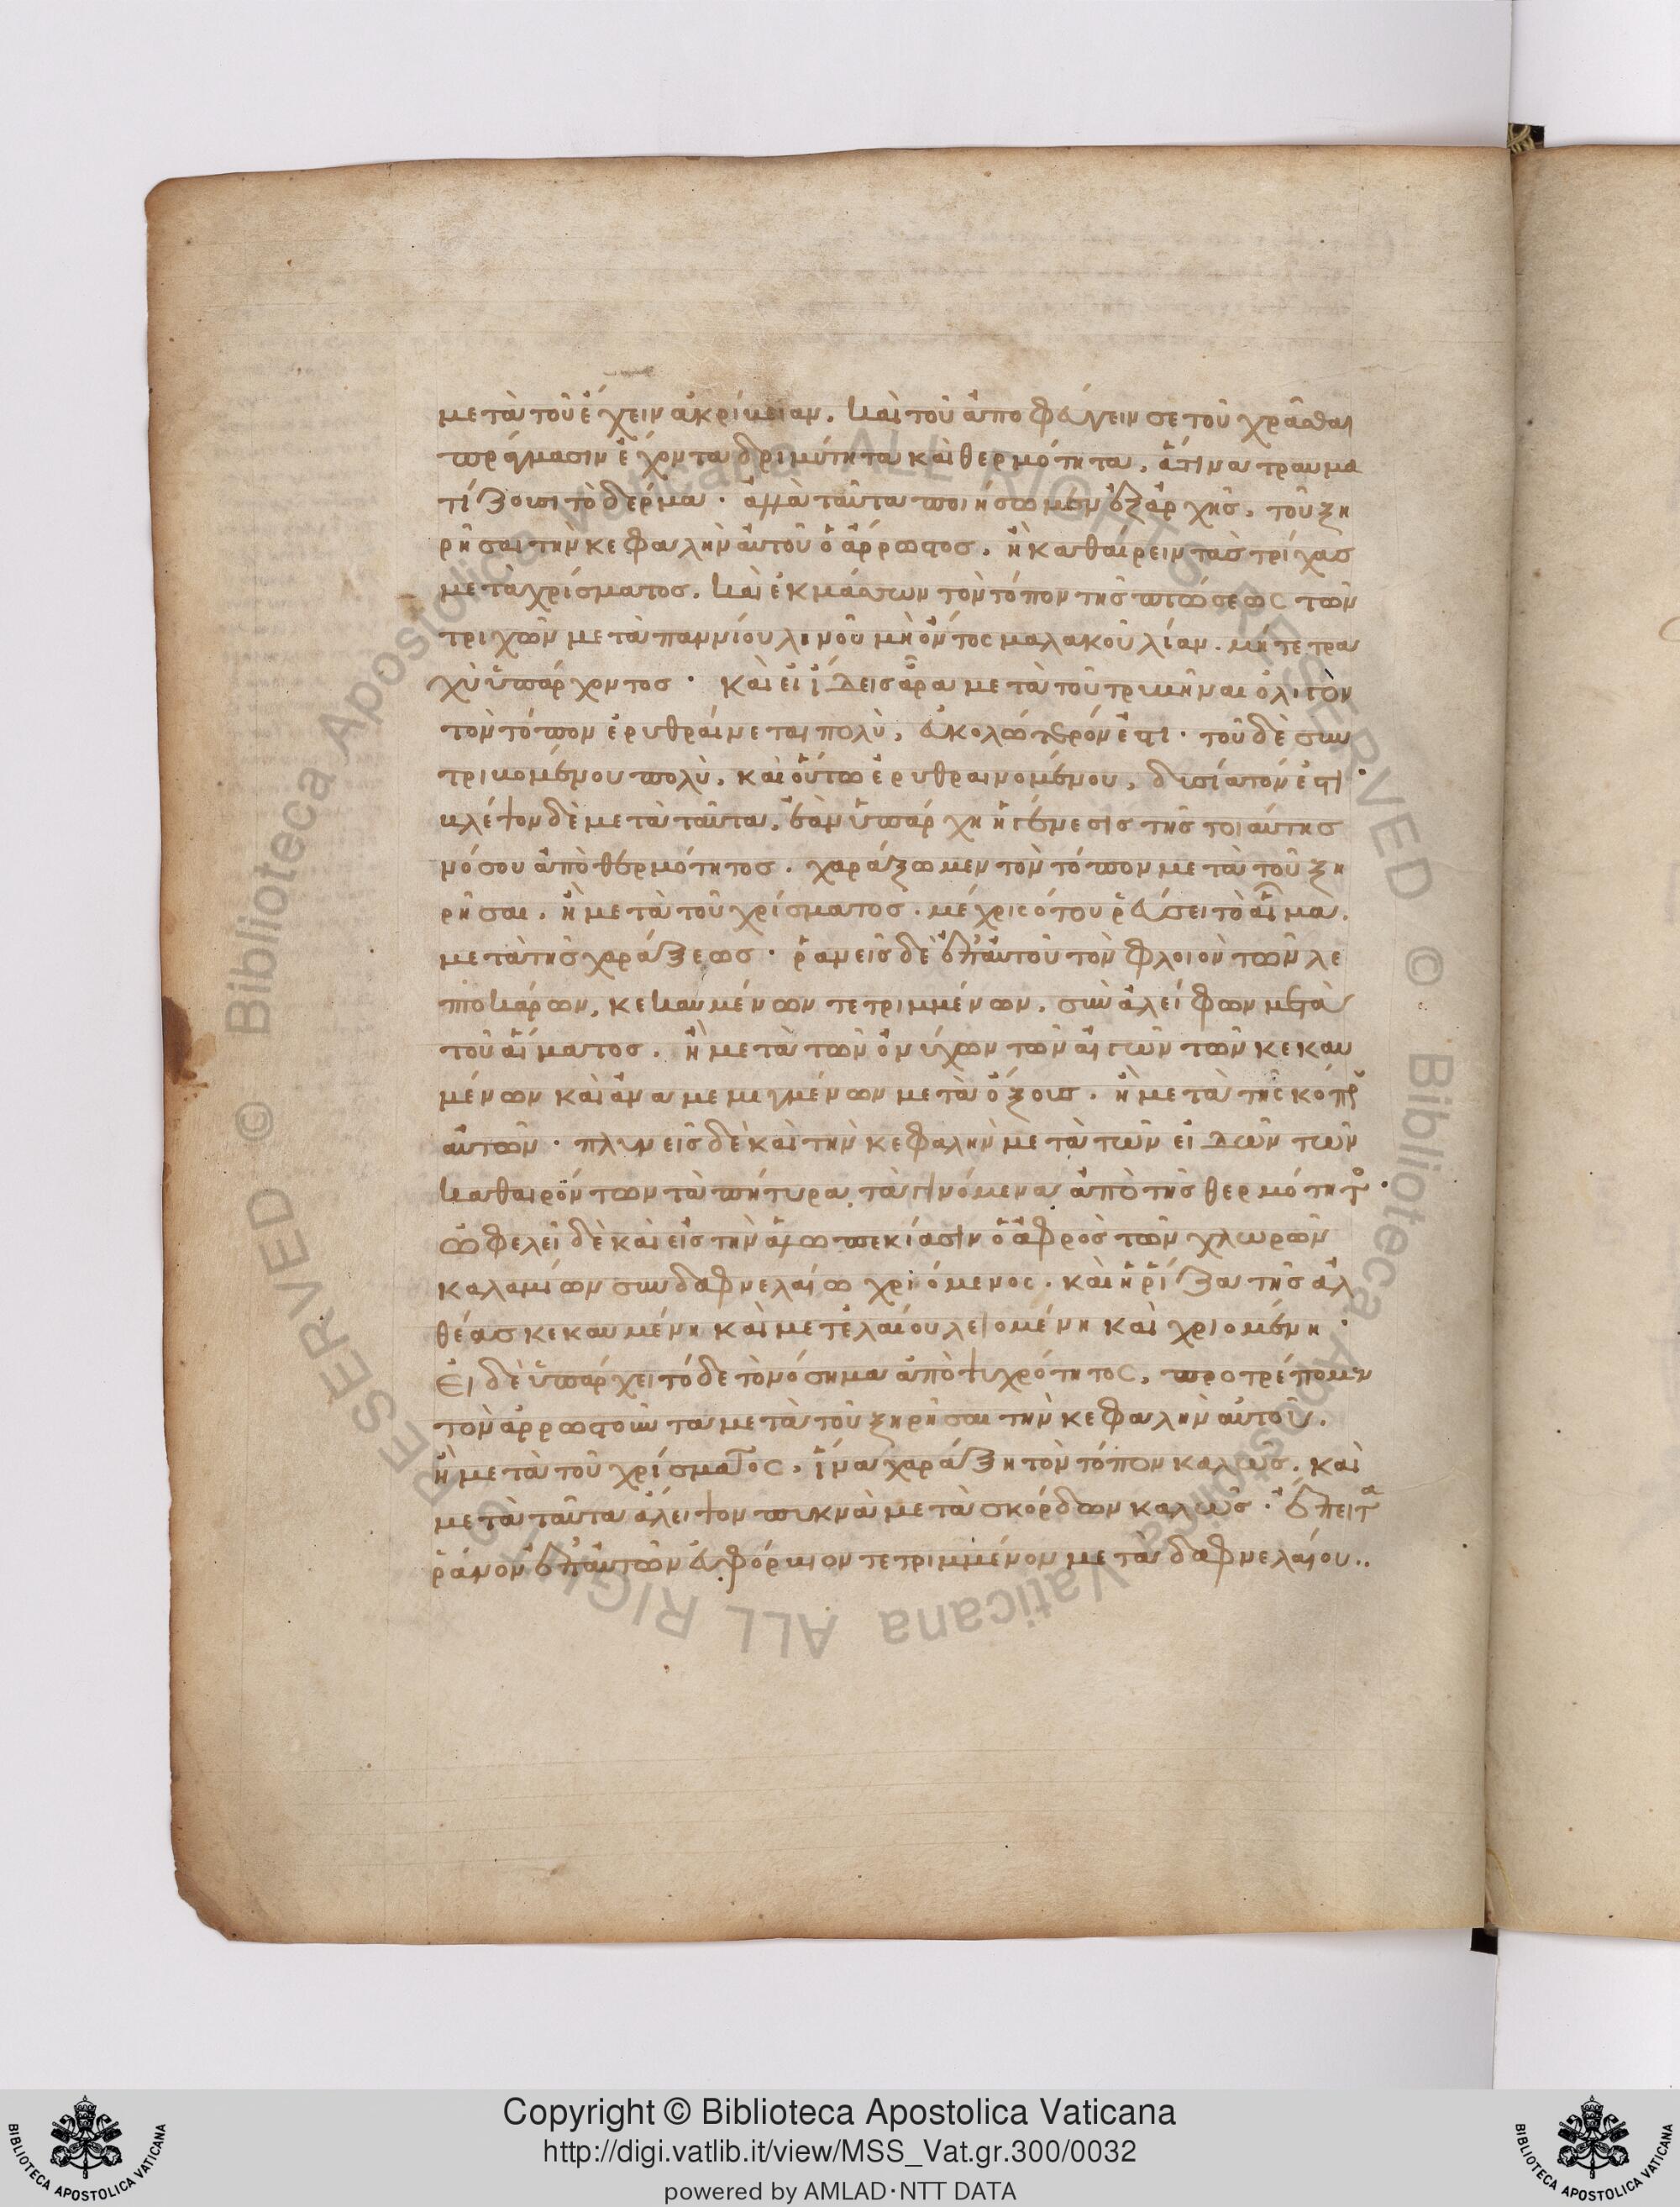 μετὰ τοῦ ἔχειν ἀκρίβειαν. καὶ τοῦ ἀποφεύγειν σε τοῦ χρᾶσθαι
πράγμασιν ἔχοντα δριμύτητα καὶ θερμότητα, ἅτινα τραυμα
τίζουσι τὸ δέρμα· ἀλλὰ ταῦτα ποιήσωμεν ἐξαρχῆς. τοῦ ξη
ρῆσαι τὴν κεφαλὴν αὐτοῦ ὁ ἄρρωστος. ἢ καθαίρειν τὰς τρίχας
μετὰ χρίσματος. καὶ ἐκμάσσων τὸν τόπον τῆς πτώσεως τῶν
τριχῶν μετὰ παννίου λινοῦ μὴ ὄντος μαλακοῦ λίαν. μήτε τρα
χὺ ὑπάρχοντος· καὶ εἰ ἴδεις ἄρα μετὰ τοῦ τριβῆναι ὀλίγον
τὸν τόπον ἐρυθραίνεται πολὺ, εὐκολώτερόν ἐστι· τοῦ δὲ συν
τριβομένου πολὺ, καὶ οὕτω ἐρυθραινομένου, δυσίατόν ἐστι·
βλέψον δὲ μετὰ ταῦτα, ἐὰν ὑπάρχη ἡ γένεσις τῆς τοιαύτης
νόσου ἀπὸ θερμότητος. χαράξωμεν τὸν τόπον μετὰ τοῦ ξη
ρῆσαι. ἢ μετὰ τοῦ χρίσματος. μέχρις ότου ῥεύσει τὸ αἷμα.
μετὰ τῆς χαράξεως· ῥανεῖς δὲ ἐπ' αὐτοῦ τὸν φλοιὸν τῶν λε
ποκάρων, κεκαυμένων τετριμμένων. συναλείφων μετὰ
τοῦ αἵματος. ἢ μετὰ τῶν ὀνύχων τῶν αἰγῶν τῶν κεκαυ
μένων καὶ ἀναμεμιγμένων μετὰ ὄξους. ἢ μετὰ τῆς κόπρου
αὐτῶν· πλυνεῖς δὲ καὶ τὴν κεφαλὴν μετὰ τῶν εἰδῶν τῶν
καθαιρόντων τὰ πήτυρα τὰ γινόμενα ἀπὸ τῆς θερμότητος·
ὠφελεῖ δὲ καὶ εἰς τὴν ἀλωπεκίασιν ὁ ἀφρὸς τῶν χλωρῶν
καλαμίων συν δαφνελαίω χριόμενος. καὶ ἡ ῥίζα τῆς ἀλ
θέας κεκαυμένη καὶ μετ' ἐλαίου λειομένη καὶ χριομένη·
Εἰ δὲ ὑπάρχει τόδε τὸ νόσημα ἀπὸ ψυχρότητος, προτρέπομεν
τὸν ἀρρωστοῦντα μετὰ τοῦ ξηρῆσαι τὴν κεφαλὴν αὐτοῦ.
ἢ μετὰ τοῦ χρίσματος, ἵνα χαράξη τὸν τόπον καλῶς. καὶ
μετὰ ταῦτα ἄλειψον πυκνὰ μετὰ σκόρδων καλῶς· ἔπειτα
ῥάνον ἐπ' αὐτῶν εὐφόρβιον τετριμμένον μετὰ δαφνελαίου..
Copyright © Biblioteca Apostolica Vaticana
http://digi.vatlib.it/view/MSS_Vat.gr.300/0032
powered by AMLAD·NTT DATA
BIBLIOTECA APOSTOLICA VATICANA
BIBLIOTECA APOSTOLICA VATICANA
© Biblioteca Apostolica Vaticana ALL RIGHTS RESERVED
© Biblioteca Apostolica Vaticana ALL RIGHTS RESERVED